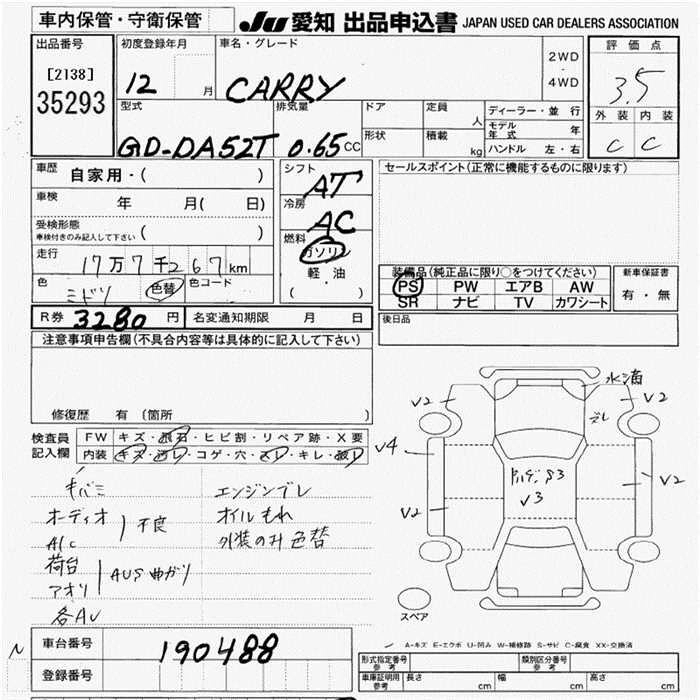 車内保管・守衛保管
JU 愛知 出品申込書 JAPAN USED CAR DEALERS ASSOCIATION
出品番号
[2138]
35293
初度登録年月
12 月
車名・グレード
CARRY
2WD
・
4WD
評価点
3.5
外装 内装
C C
型式
GD-DA52T
排気量
0.65 CC
ドア
定員 人
形状
積載 kg
ディーラー・並行
モデル年式 年
ハンドル 左・右
車歴 自家用・( )
車検 年 月( 日)
受検形態
車検付きのみ記入して下さい ( )
走行
17万7千267km
色
ミドリ
色替
色コード
シフト
AT
冷房
AC
燃料
ガソリン
軽・油
( )
セールスポイント(正常に機能するものに限ります)
装備品(純正品に限り○をつけてください)
PS PW エアB AW
SR ナビ TV カワシート
新車保証書
有・無
R券 3280 円
名変通知期限 月 日
後日品
注意事項申告欄(不具合内容等は具体的に記入して下さい)
修復歴 有 〔箇所 〕
検査員記入欄
FW キズ・飛石・ヒビ割・リペア跡・X要
内装 キズ・汚レ・コゲ・穴・スレ・キレ・破レ
キバミ
オーディオ
A/C
不良
荷台
アオリ
AUS曲ガリ
各AU
エンジンブレ
オイルもれ
外装のみ色替
水滴
V2
V2
V4
V3
V2
V2
スペア
A-キズ E-エクボ U-凹み W-補修跡 S-サビ C-腐食 XX-交換済
車台番号 190488
登録番号
形式指定番号
参考
類別区分番号
参考
車庫証明用
参考
長さ cm
幅 cm
高さ cm